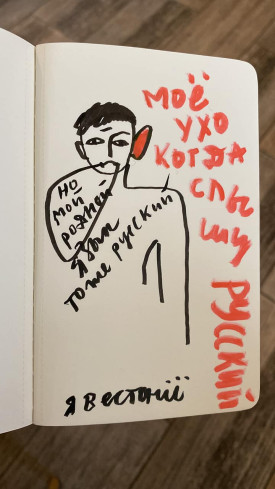 моё
ухо
когда
слы
шу
русский
но
мой
родной
язык
тоже русский
я в естонії